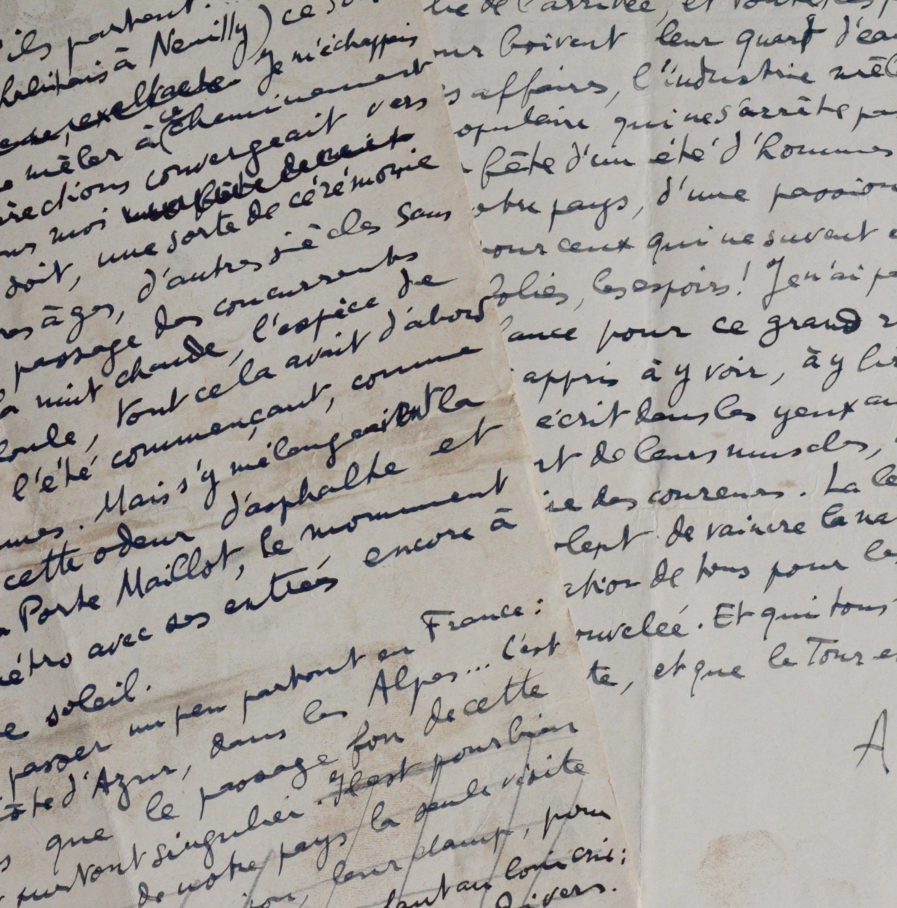 ils partent.
habitais à Neuilly) ce
Je m'échappais
mêler à ce cheminement
directions convergeait vers
moi
soit, une sorte de cérémonie
âges, d'autres siècles sans
passage des concurrents
nuit chaude, l'espèce de
foule, tout cela avait d'abord
l'été commençant, comme
Mais s'y mélangeaient la
cette odeur d'asphalte et
Porte Maillot, le monument
métro avec ses entrées encore à
soleil.
passer un peu partout en France :
Côte d'Azur, dans les Alpes... C'est
que le passage fou de cette
surtout singulier. Il est pour bien
de notre pays la seule visite
leur champ, pour
de l'arrivée, et toutes les
boivent leur quart d'eau
affaires, l'industrie mêl
populaire qui ne s'arrête pa
fête d'un été d'hommes
notre pays, d'une passion
pour ceux qui ne suvent
folies, les espoirs ! Je n'ai p
ance pour ce grand r
appris à y voir, à y lir
écrit dans les yeux au
rt de leurs muscles,
ie des coureurs. La le
de vaincre la na
ation de tous pour le
ouvelée. Et qui tous
te, et que le Tour e
A